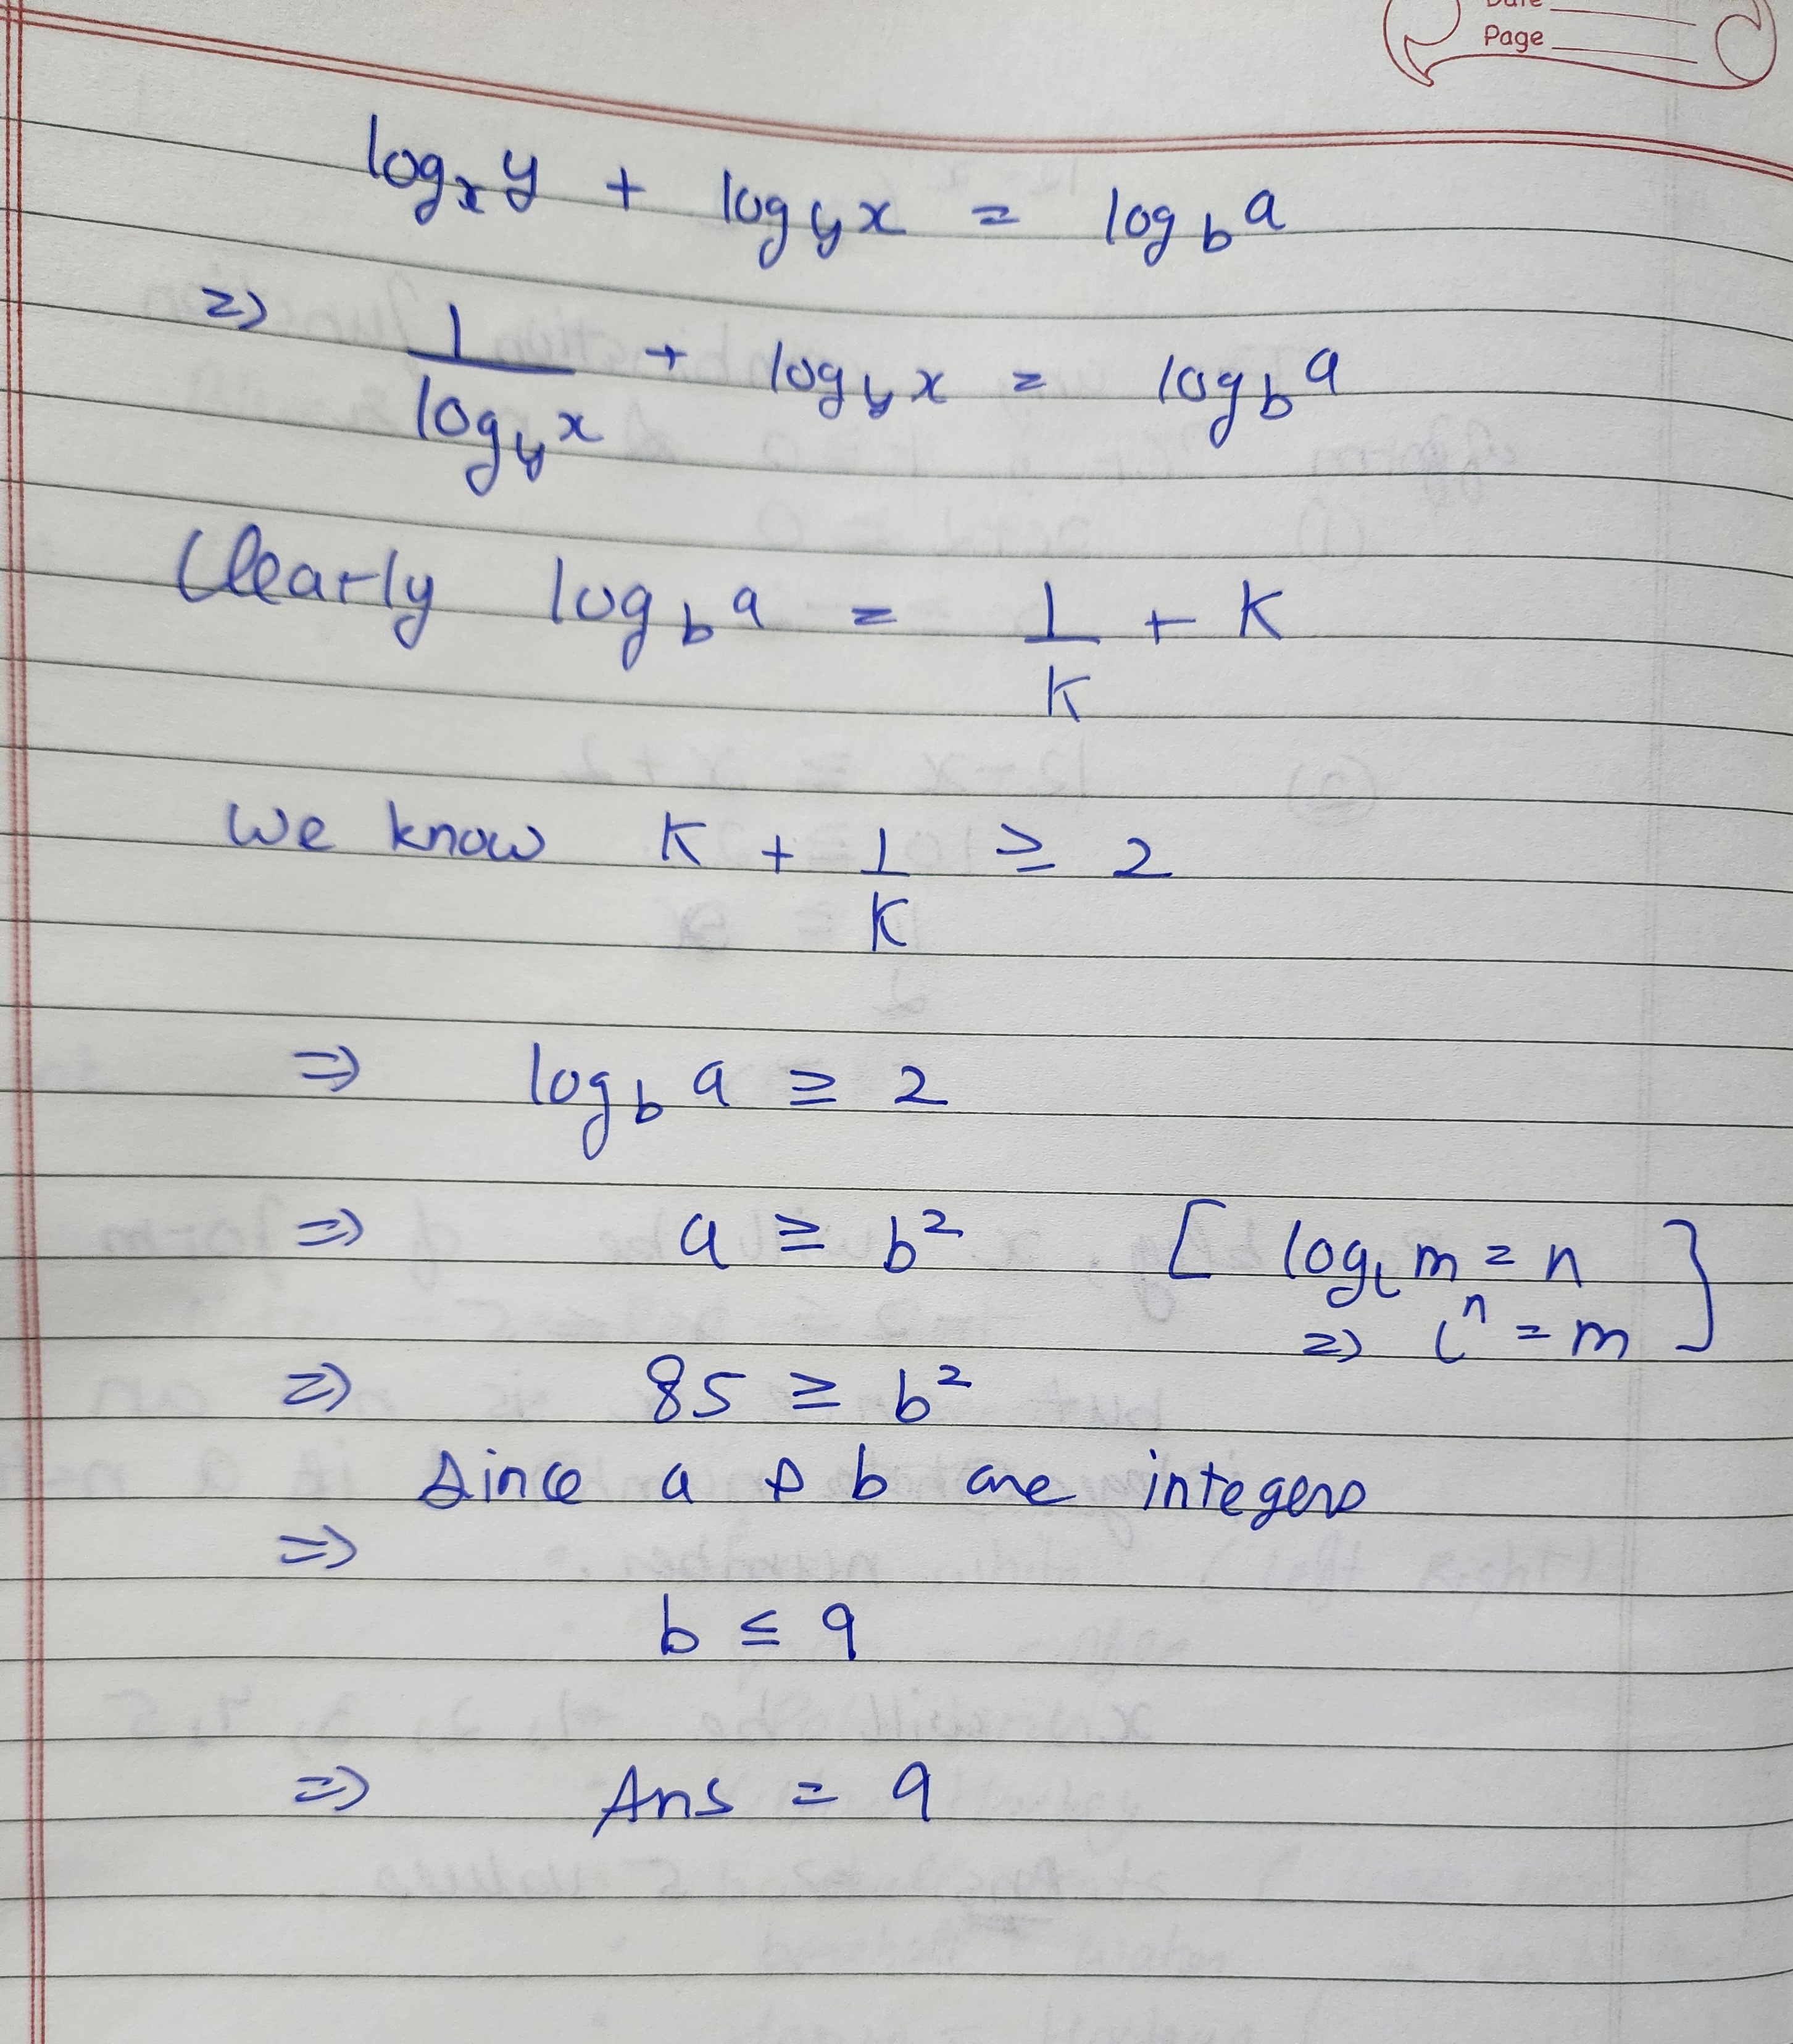 Date
Page
logₓ y + log_y x = log_b a
=> 1/log_y x + log_y x = log_b a
Clearly log_b a = 1/K + K
We know K + 1/K ≥ 2
=> log_b a ≥ 2
=> a ≥ b² [ log_c m = n => cⁿ = m ]
=> 85 ≥ b²
Since a & b are integers
=>
b ≤ 9
=> Ans = 9